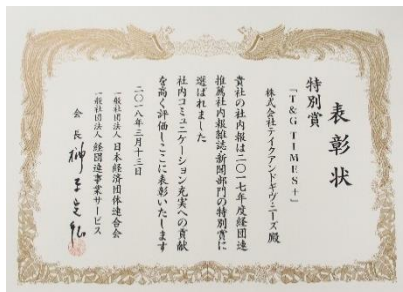 表彰状
特別賞
「T&G TIMES+」
株式会社テイクアンドギヴ・ニーズ 殿
貴社の社内報は二〇一七年度経団連
推薦社内報雑誌・新聞部門の特別賞に
選ばれました
社内コミュニケーション充実への貢献
を高く評価しここに表彰いたします
二〇一八年三月十三日
一般社団法人 日本経済団体連合会
一般社団法人 経団連事業サービス
会長 榊原定征